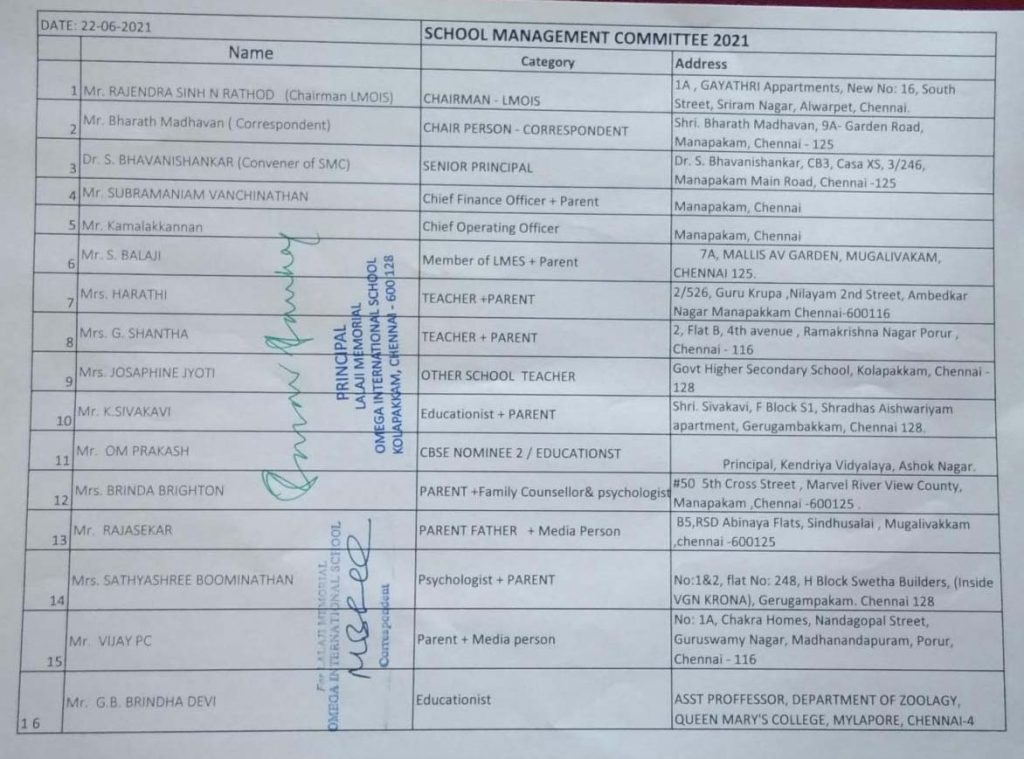 DATE: 22-06-2021
SCHOOL MANAGEMENT COMMITTEE 2021
Name Category Address
1 Mr. RAJENDRA SINH N RATHOD (Chairman LMOIS) CHAIRMAN - LMOIS 1A , GAYATHRI Appartments, New No: 16, South
Street, Sriram Nagar, Alwarpet, Chennai.
2 Mr. Bharath Madhavan ( Correspondent) CHAIR PERSON - CORRESPONDENT Shri. Bharath Madhavan, 9A- Garden Road,
Manapakam, Chennai - 125
3 Dr. S. BHAVANISHANKAR (Convener of SMC) SENIOR PRINCIPAL Dr. S. Bhavanishankar, CB3, Casa XS, 3/246,
Manapakam Main Road, Chennai -125
4 Mr. SUBRAMANIAM VANCHINATHAN Chief Finance Officer + Parent Manapakam, Chennai
5 Mr. Kamalakkannan Chief Operating Officer Manapakam, Chennai
6 Mr. S. BALAJI Member of LMES + Parent 7A, MALLIS AV GARDEN, MUGALIVAKAM,
CHENNAI 125.
7 Mrs. HARATHI TEACHER +PARENT 2/526, Guru Krupa ,Nilayam 2nd Street, Ambedkar
Nagar Manapakkam Chennai-600116
8 Mrs. G. SHANTHA TEACHER + PARENT 2, Flat B, 4th avenue , Ramakrishna Nagar Porur ,
Chennai - 116
9 Mrs. JOSAPHINE JYOTI OTHER SCHOOL TEACHER Govt Higher Secondary School, Kolapakkam, Chennai -
128
10 Mr. K.SIVAKAVI Educationist + PARENT Shri. Sivakavi, F Block S1, Shradhas Aishwariyam
apartment, Gerugambakkam, Chennai 128.
11 Mr. OM PRAKASH CBSE NOMINEE 2 / EDUCATIONST Principal, Kendriya Vidyalaya, Ashok Nagar.
12 Mrs. BRINDA BRIGHTON PARENT +Family Counsellor& psychologist #50 5th Cross Street , Marvel River View County,
Manapakam ,Chennai -600125 .
13 Mr. RAJASEKAR PARENT FATHER + Media Person B5,RSD Abinaya Flats, Sindhusalai , Mugalivakkam
,chennai -600125
14 Mrs. SATHYASHREE BOOMINATHAN Psychologist + PARENT No:1&2, flat No: 248, H Block Swetha Builders, (Inside
VGN KRONA), Gerugampakam. Chennai 128
15 Mr. VIJAY PC Parent + Media person No: 1A, Chakra Homes, Nandagopal Street,
Guruswamy Nagar, Madhanandapuram, Porur,
Chennai - 116
16 Mr. G.B. BRINDHA DEVI Educationist ASST PROFFESSOR, DEPARTMENT OF ZOOLAGY,
QUEEN MARY'S COLLEGE, MYLAPORE, CHENNAI-4
PRINCIPAL
LALAJI MEMORIAL
OMEGA INTERNATIONAL SCHOOL
KOLAPAKKAM, CHENNAI - 600 128
For LALAJI MEMORIAL
OMEGA INTERNATIONAL SCHOOL
Correspondent